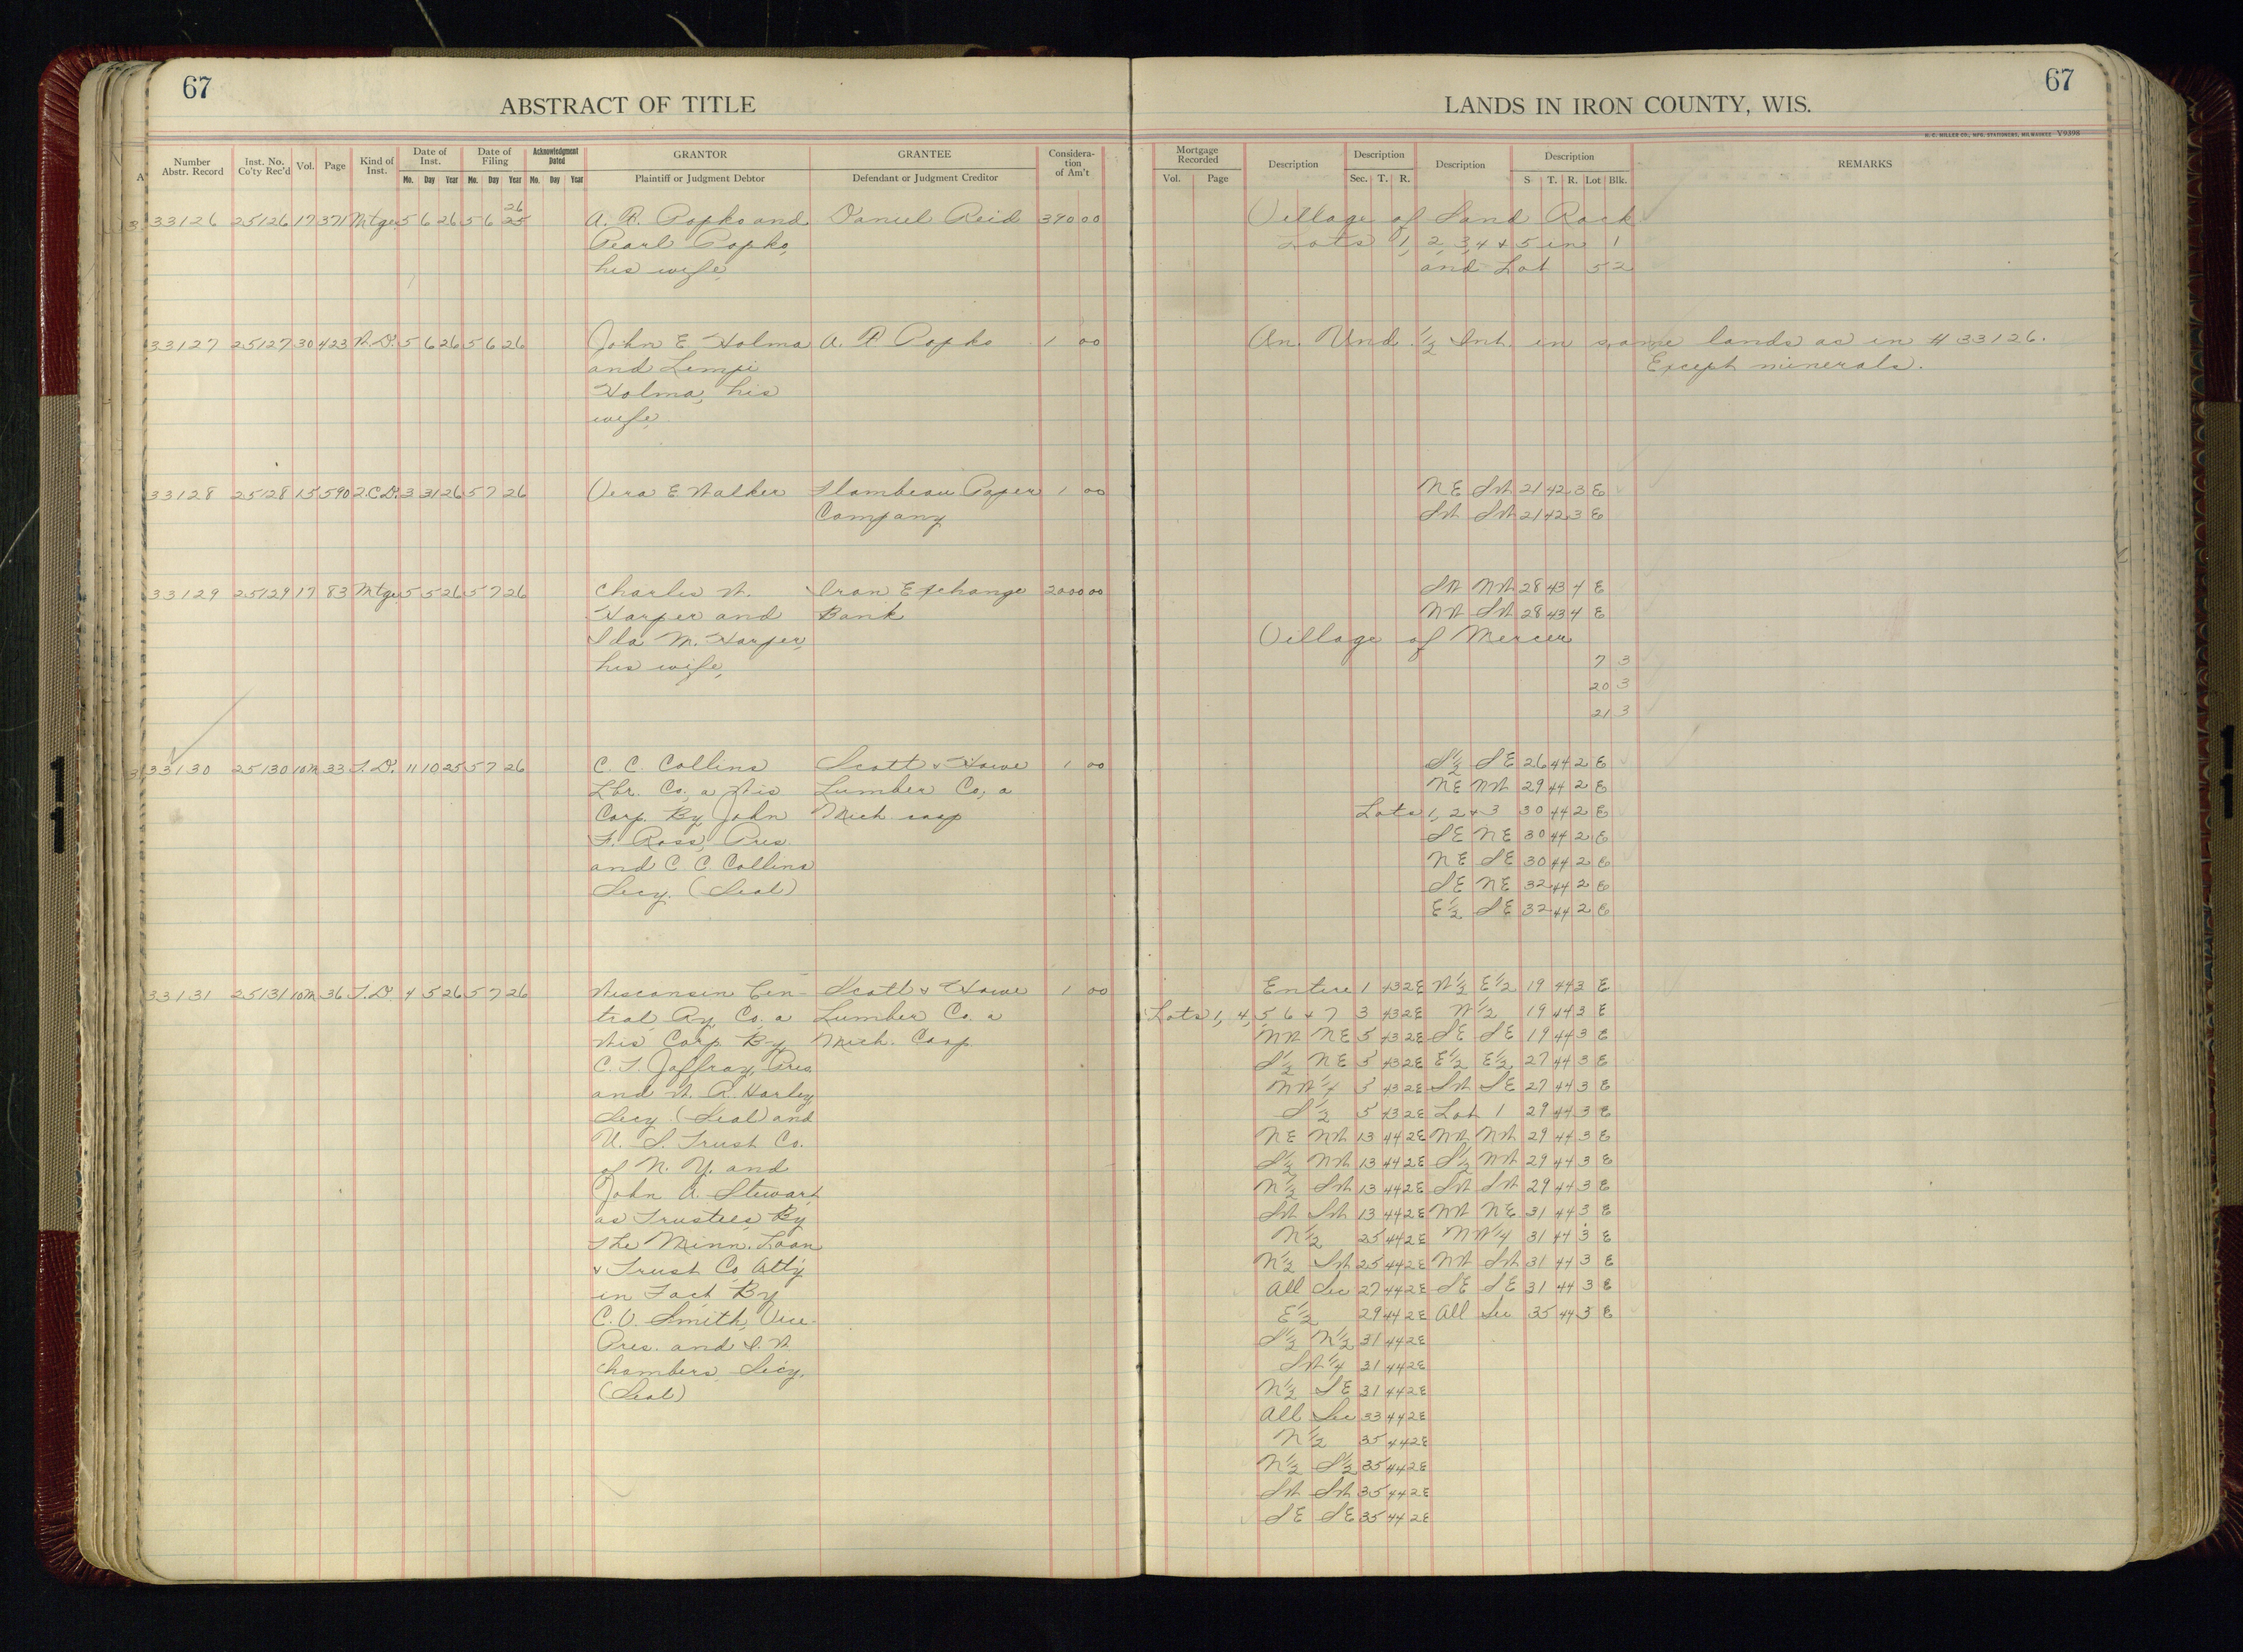 67
67
ABSTRACT OF TITLE
LANDS IN IRON COUNTY, WIS.
H. C. MILLER CO., MFG. STATIONERS, MILWAUKEE Y9398
Number Abstr. Record
Inst. No. Co'ty Rec'd
Vol.
Page
Kind of Inst.
Date of Inst.
Mo. Day Year
Date of Filing
Mo. Day Year
Acknowledgment Dated
Mo. Day Year
GRANTOR
Plaintiff or Judgment Debtor
GRANTEE
Defendant or Judgment Creditor
Considera-tion of Am't
Mortgage Recorded
Vol. Page
Description
Description
Sec. T. R.
Description
Description
S T. R. Lot Blk.
REMARKS
26
33126 25126 17 371 Mtge 5 6 26 5 6 25 A. R. Popko and Daniel Reid 390 00 Village of Sand Rock
Pearl Popko, Lots 1, 2, 3, 4 & 5 in 1
his wife, and Lot 5 2
33127 25127 30 423 W.D. 5 6 26 5 6 26 John E. Holma A. R Popko 1 00 An Und. 1/2 Int. in same lands as in # 33126.
and Lempi Except minerals.
Holma, his
wife,
33128 25128 15 590 2.C.D. 3 31 26 5 7 26 Vera E Walker Flambeau Paper 1 00 NE SW 21 42 3 E
Company SW SW 21 42 3 E
33129 25129 17 83 Mtge 5 5 26 5 7 26 Charles W. Iron Exchange 2000 00 SW NW 28 43 4 E
Harper and Bank NW SW 28 43 4 E
Ida M. Harper, Village of Mercer
his wife, 7 3
20 3
21 3
33130 25130 10M 33 T.D. 11 10 25 5 7 26 C. C. Collins Scott & Howe 1 00 S1/2 SE 26 44 2 E
Lbr. Co, a Wis Lumber Co, a NE NW 29 44 2 E
Corp. By John Mich corp Lots 1, 2 & 3 30 44 2 E
F. Ross, Pres SE NE 30 44 2 E
and C. C. Collins NE SE 30 44 2 E
Secy. (Seal) SE NE 32 44 2 E
E1/2 SE 32 44 2 E
33131 25131 10M 36 T.D. 4 5 26 5 7 26 Wisconsin Cen- Scott & Howe 1 00 Entire 1 43 2E W1/2 E1/2 19 44 3 E
tral Ry. Co, a Lumber Co. a Lots 1, 4, 5 6 & 7 3 43 2E W1/2 19 44 3 E
Wis Corp. By Mich. Corp. NW NE 5 43 2E SE SE 19 44 3 E
C. T. Jaffray, Pres. S1/2 NE 5 43 2E E1/2 E1/2 27 44 3 E
and W. R. Harley, NW1/4 5 43 2E SW SE 27 44 3 E
Secy (Seal) and S1/2 5 43 2E Lot 1 29 44 3 E
U. S. Trust Co. NE NW 13 44 2E NW NW 29 44 3 E
of N. Y. and S1/2 NW 13 44 2E S1/2 NW 29 44 3 E
John A. Stewart N1/2 SW 13 44 2E SW SW 29 44 3 E
as Trustees By SW SW 13 44 2E NW NE 31 44 3 E
The Minn. Loan N1/2 25 44 2E NW1/4 31 44 3 E
& Trust Co Atty N1/2 SW 25 44 2E NW SW 31 44 3 E
in Fact By All Sec 27 44 2E SE SE 31 44 3 E
C. V. Smith, Vice- E1/2 29 44 2E All Sec 35 44 3 E
Pres. and S. W. S1/2 N1/2 31 44 2E
Chambers, Secy, SW1/4 31 44 2E
(Seal) N1/2 SE 31 44 2E
All Sec 33 44 2E
N1/2 35 44 2E
N1/2 S1/2 35 44 2E
SW SW 35 44 2E
SE SE 35 44 2E